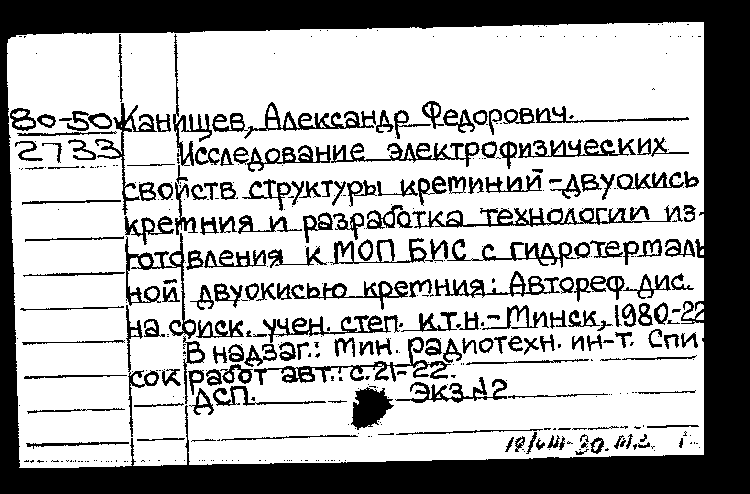 80-50 Канищев, Александр Федорович.
2733 Исследование электрофизических
свойств структуры кретиний-двуокись
кретния и разработка технологии из-
готовления к МОП БИС с гидротермаль
ной двуокисью кретния: Автореф. дис.
на соиск. учен. степ. к.т.н.-Минск, 1980.-22
В надзаг.: Мин. радиотехн. ин-т. Спи-
сок работ авт.: с.21-22.
ДСП. Экз №2